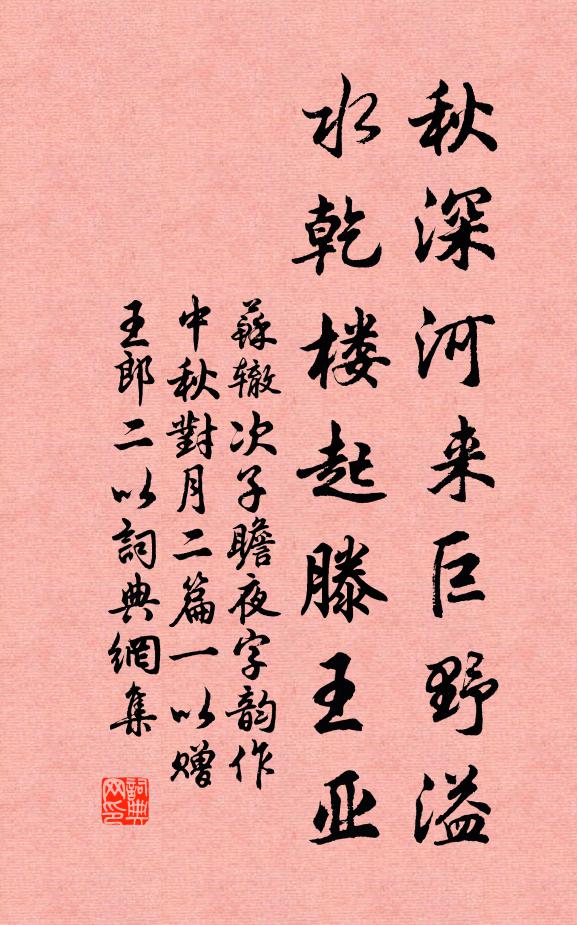 秋深河来巨野溢
水乾楼起滕王亚
蘇辙次子瞻夜字韵作
中秋對月二篇一以赠
王郎二以詞典網集
詞典
网印